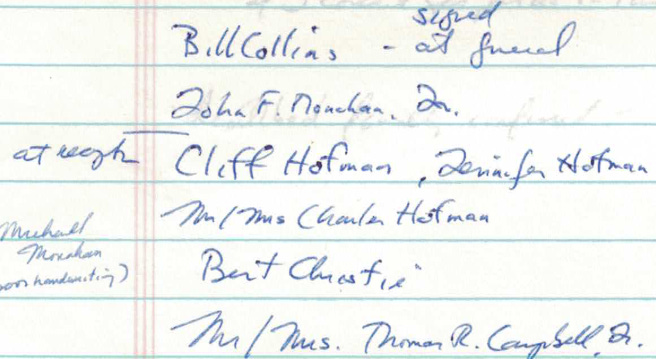 signed
Bill Collins - at funeral
John F. Monahan, Jr.
at recept Cliff Hofman, Jennifer Hofman
Mr/Mrs Charles Hofman
Michael
Monahan
poor handwriting)
Bert Christie
Mr/Mrs. Thomas R. Campbell Jr.